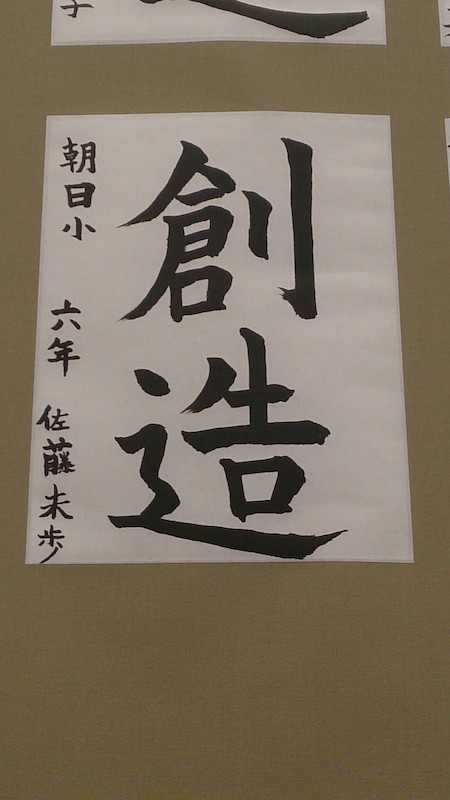 創造
朝日小 六年 佐藤未歩
子